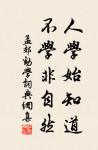 人學始知道
不學非自然
孟郊勸學詞典網集